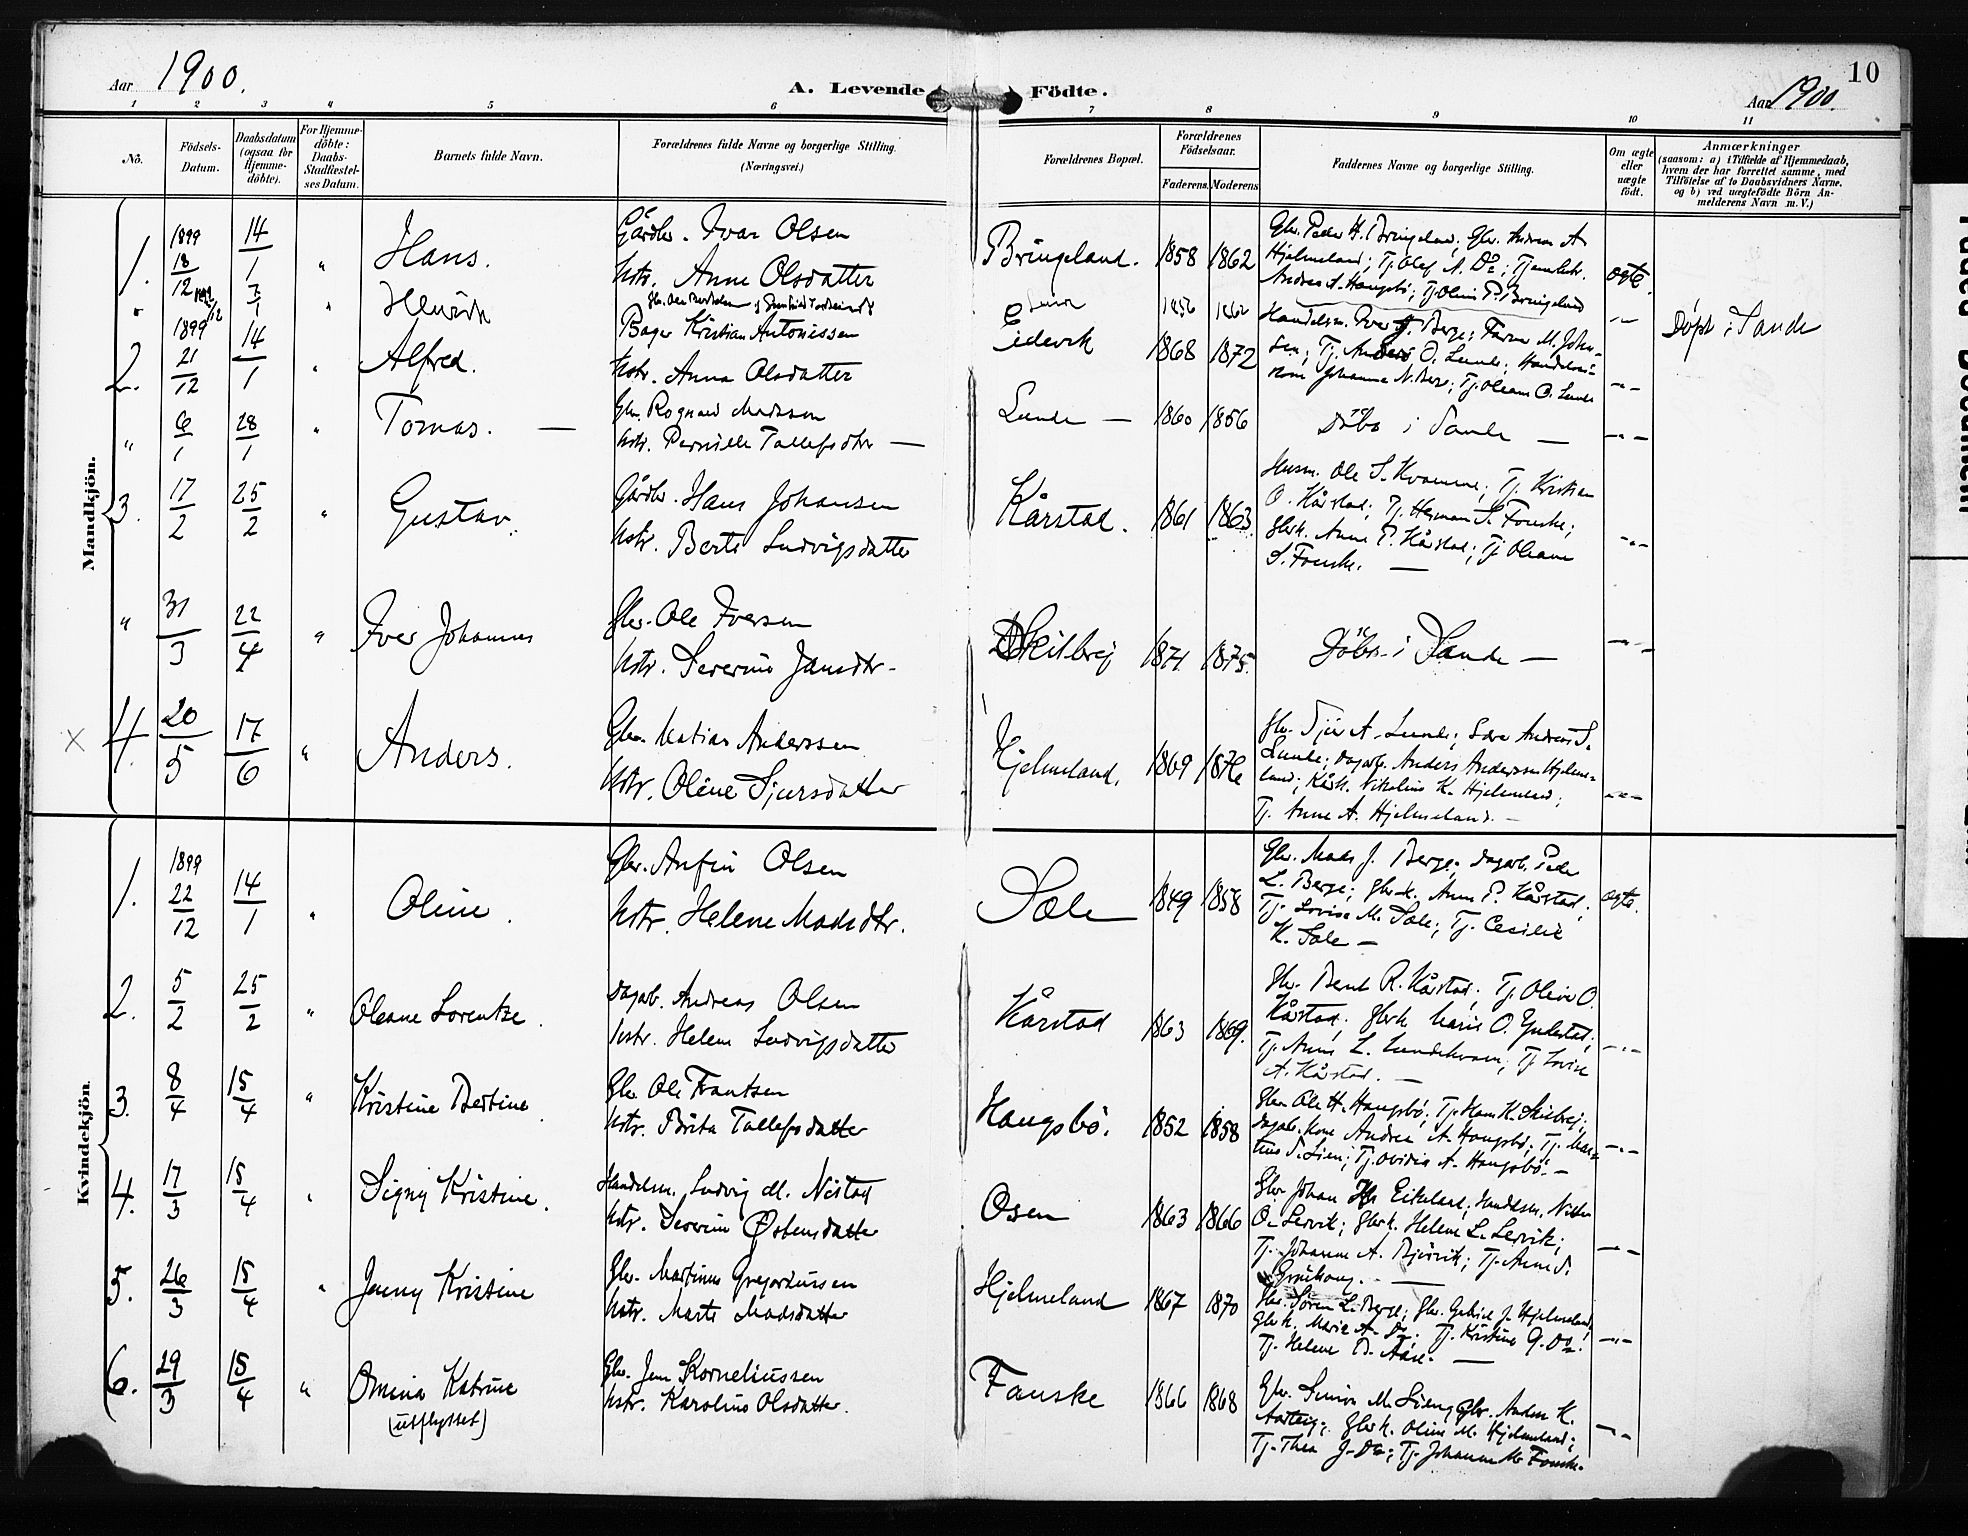 Aar 1900.
A. Levende Födte.
10
Aar 1900.
1 2 3 4 5 6 7 8 9 10 11
No.
Födsels-
Datum.
Daabsdatum
(ogsaa for
Hjemme-
döbte).
For Hjemme-
döbte:
Daabs-
Stadfæstel-
ses Datum.
Barnets fulde Navn.
Forældrenes fulde Navne og borgerlige Stilling.
(Næringsvei.)
Forældrenes Bopæl.
Forældrenes
Födselsaar.
Faderens. Moderens
Faddernes Navne og borgerlige Stilling.
Om ægte
eller
uægte
födt.
Anmærkninger
(saasom: a) i Tilfælde af Hjemmedaab,
hvem der har forrettet samme, med
Tilföielse af to Daabsvidners Navne.
og b) ved uægtefödte Börn An-
melderens Navn m. V.)
Mandkjön.
1. 1899 18/12 14/1 " Hans.
Gårdbr. Ivar Olsen
Hstr. Anne Olsdatter
Bringeland. 1858 1862
Gbr. Peder H. Bringeland; Gbr. Andreas A.
Hjelmeland; Tj. Olef A. Do; Tjenestek.
Andrea A. Haugsbö; Tj. Oline P. Bringeland
ægte.
" 7/1 " Henrik
1856 1862
Döpt i Sande
2. 1899 21/12 14/1 " Alfred.
Bager Kristian Antonissen
Hstr. Anna Olsdatter
Eidevik 1868 1872
Handelsm. Iver J. Berge; Farver M. John-
sen; Tj. Anders O. Lunde; Handelsm-
kone Johanna N. Berge; Tj. Oleana O. Lunde
" 6/1 28/1 " Tomas. —
Gbr. Ragnvald Madssen
Hstr. Pernille Tollefsdtr —
Lunde — 1860 1856
Döbt i Sande —
3. 17/2 25/2 " Gustav.
Gårdbr. Hans Johansen
Hstr. Berte Ludvigsdatter
Kårstad. 1861 1863.
Husm. Ole S. Kvamme; Tj. Kristian
O. Kårstad; Tj. Herman S. Fauske;
Gbrk. Anne P. Kårstad; Tj. Oleane
S. Fauske. —
" 31/3 22/4 " Iver Johannes
Gbr. Ole Iversen
Hstr. Severine Jansdtr-
Skilbrei 1871 1875.
Döbt i Sande —
4. 20/5 17/6 " Anders.
Gbr. Matias Anderssen
Hstr. Oline Sjursdatter
Hjelmeland. 1869 1876
Gbr. Sjur A. Lunde; Andreas S.
Lunde; Dagarb. Anders Anderssen Hjelme-
land; Kårk. Nikoline K. Hjelmeland;
Tj. Anne A. Hjelmeland. —
Kvindekjön.
1. 1899 22/12 14/1 " Oline.
Gbr. Anfin Olsen
Hstr. Helene Madsdtr.
Sæle 1849 1858
Gbr. Mads J. Berge; Dagarb. Peder
L. Berge; Gbrk. Anne P. Kårstad;
Tj. Lovise M. Sæle; Tj. Cecilie
K. Sæle —
ægte.
2. 5/2 25/2 " Oleane Lorentze.
Dagarb. Andreas Olsen
Hstr. Helene Ludvigsdatter
Kårstad 1863 1869.
Gbr. Bent R. Kårstad; Tj. Oline O.
Kårstad; Gbrk. Marie O.
Tj. Anne L. Lundekvam; Tj. Lovise
A. Kårstad. —
3. 8/4 15/4 " Kristine Bertine.
Gbr. Ole Frantsen
Hstr. Brita Tollefsdatter
Haugsbö. 1852 1858
Gbr. Ole H. Haugsbö; Tj. Hans K. Skilbrei;
Dagarb. kone Andrea A. Haugsbö; Tj. Mar-
Tj. Ovidia A. Haugsbö. —
4. 17/3 15/4 " Signy Kristine.
Handelsm. Ludvig M. Nistad
Hstr. Severine Östensdatter
Osen 1863 1866
Gbr. Johan Eikeland; Handelsm.
O. Lervik; Gbrk. Helene L. Lervik;
Tj. Johanne A. Björvik; Tj. Anne S.
5. 26/3 15/4 " Jenny Kristine
Gbr. Martinus Gregoriussen
Hstr. Marte Madsdatter
Hjelmeland 1867 1870
Gbr. Sören L. Berge; Gbr. Gabriel J. Hjelmeland;
Gbrk. Marie A. Do; Tj. Kristine G. Do.
Tj. Helene B. Aase. —
6. 29/3 15/4 " Omina Katrine
(utflyttet)
Gbr. Jens Korneliussen
Hstr. Karoline Olsdatter.
Fauske 1866 1868
Gbr. Simon M. Gbr. Anders K.
Gbrk. Oline M. Hjelmeland;
Tj. Thea J. Do; Tj. Johanne M. Fauske.